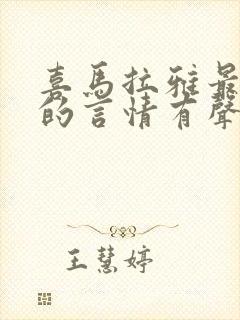 喜馬拉雅最
的言情有聲
王慧婷